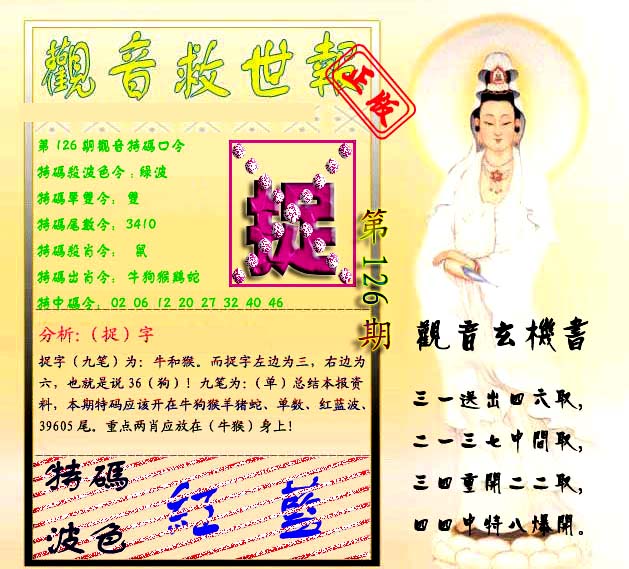 觀音救世報
正版
第126期觀音特碼口令
特碼殺波色令:綠波
特碼單雙令: 雙
特碼尾數令: 3410
特碼殺肖令: 鼠
特碼出肖令: 牛狗猴鷄蛇
特中碼令: 02 06 12 20 27 32 40 46
捉
第126期
分析:(捉)字
捉字(九笔)为:牛和猴。而捉字左边为三,右边为
六,也就是说36(狗)!九笔为:(单)总结本报资
料,本期特码应该开在牛狗猴羊猪蛇、单数、红蓝波、
39605尾。重点两肖应放在(牛猴)身上!
特碼
波色
紅 藍
觀音玄機書
三一送出四六取,
二一三七中間取,
三四重開二二取,
四四中特八爆開。